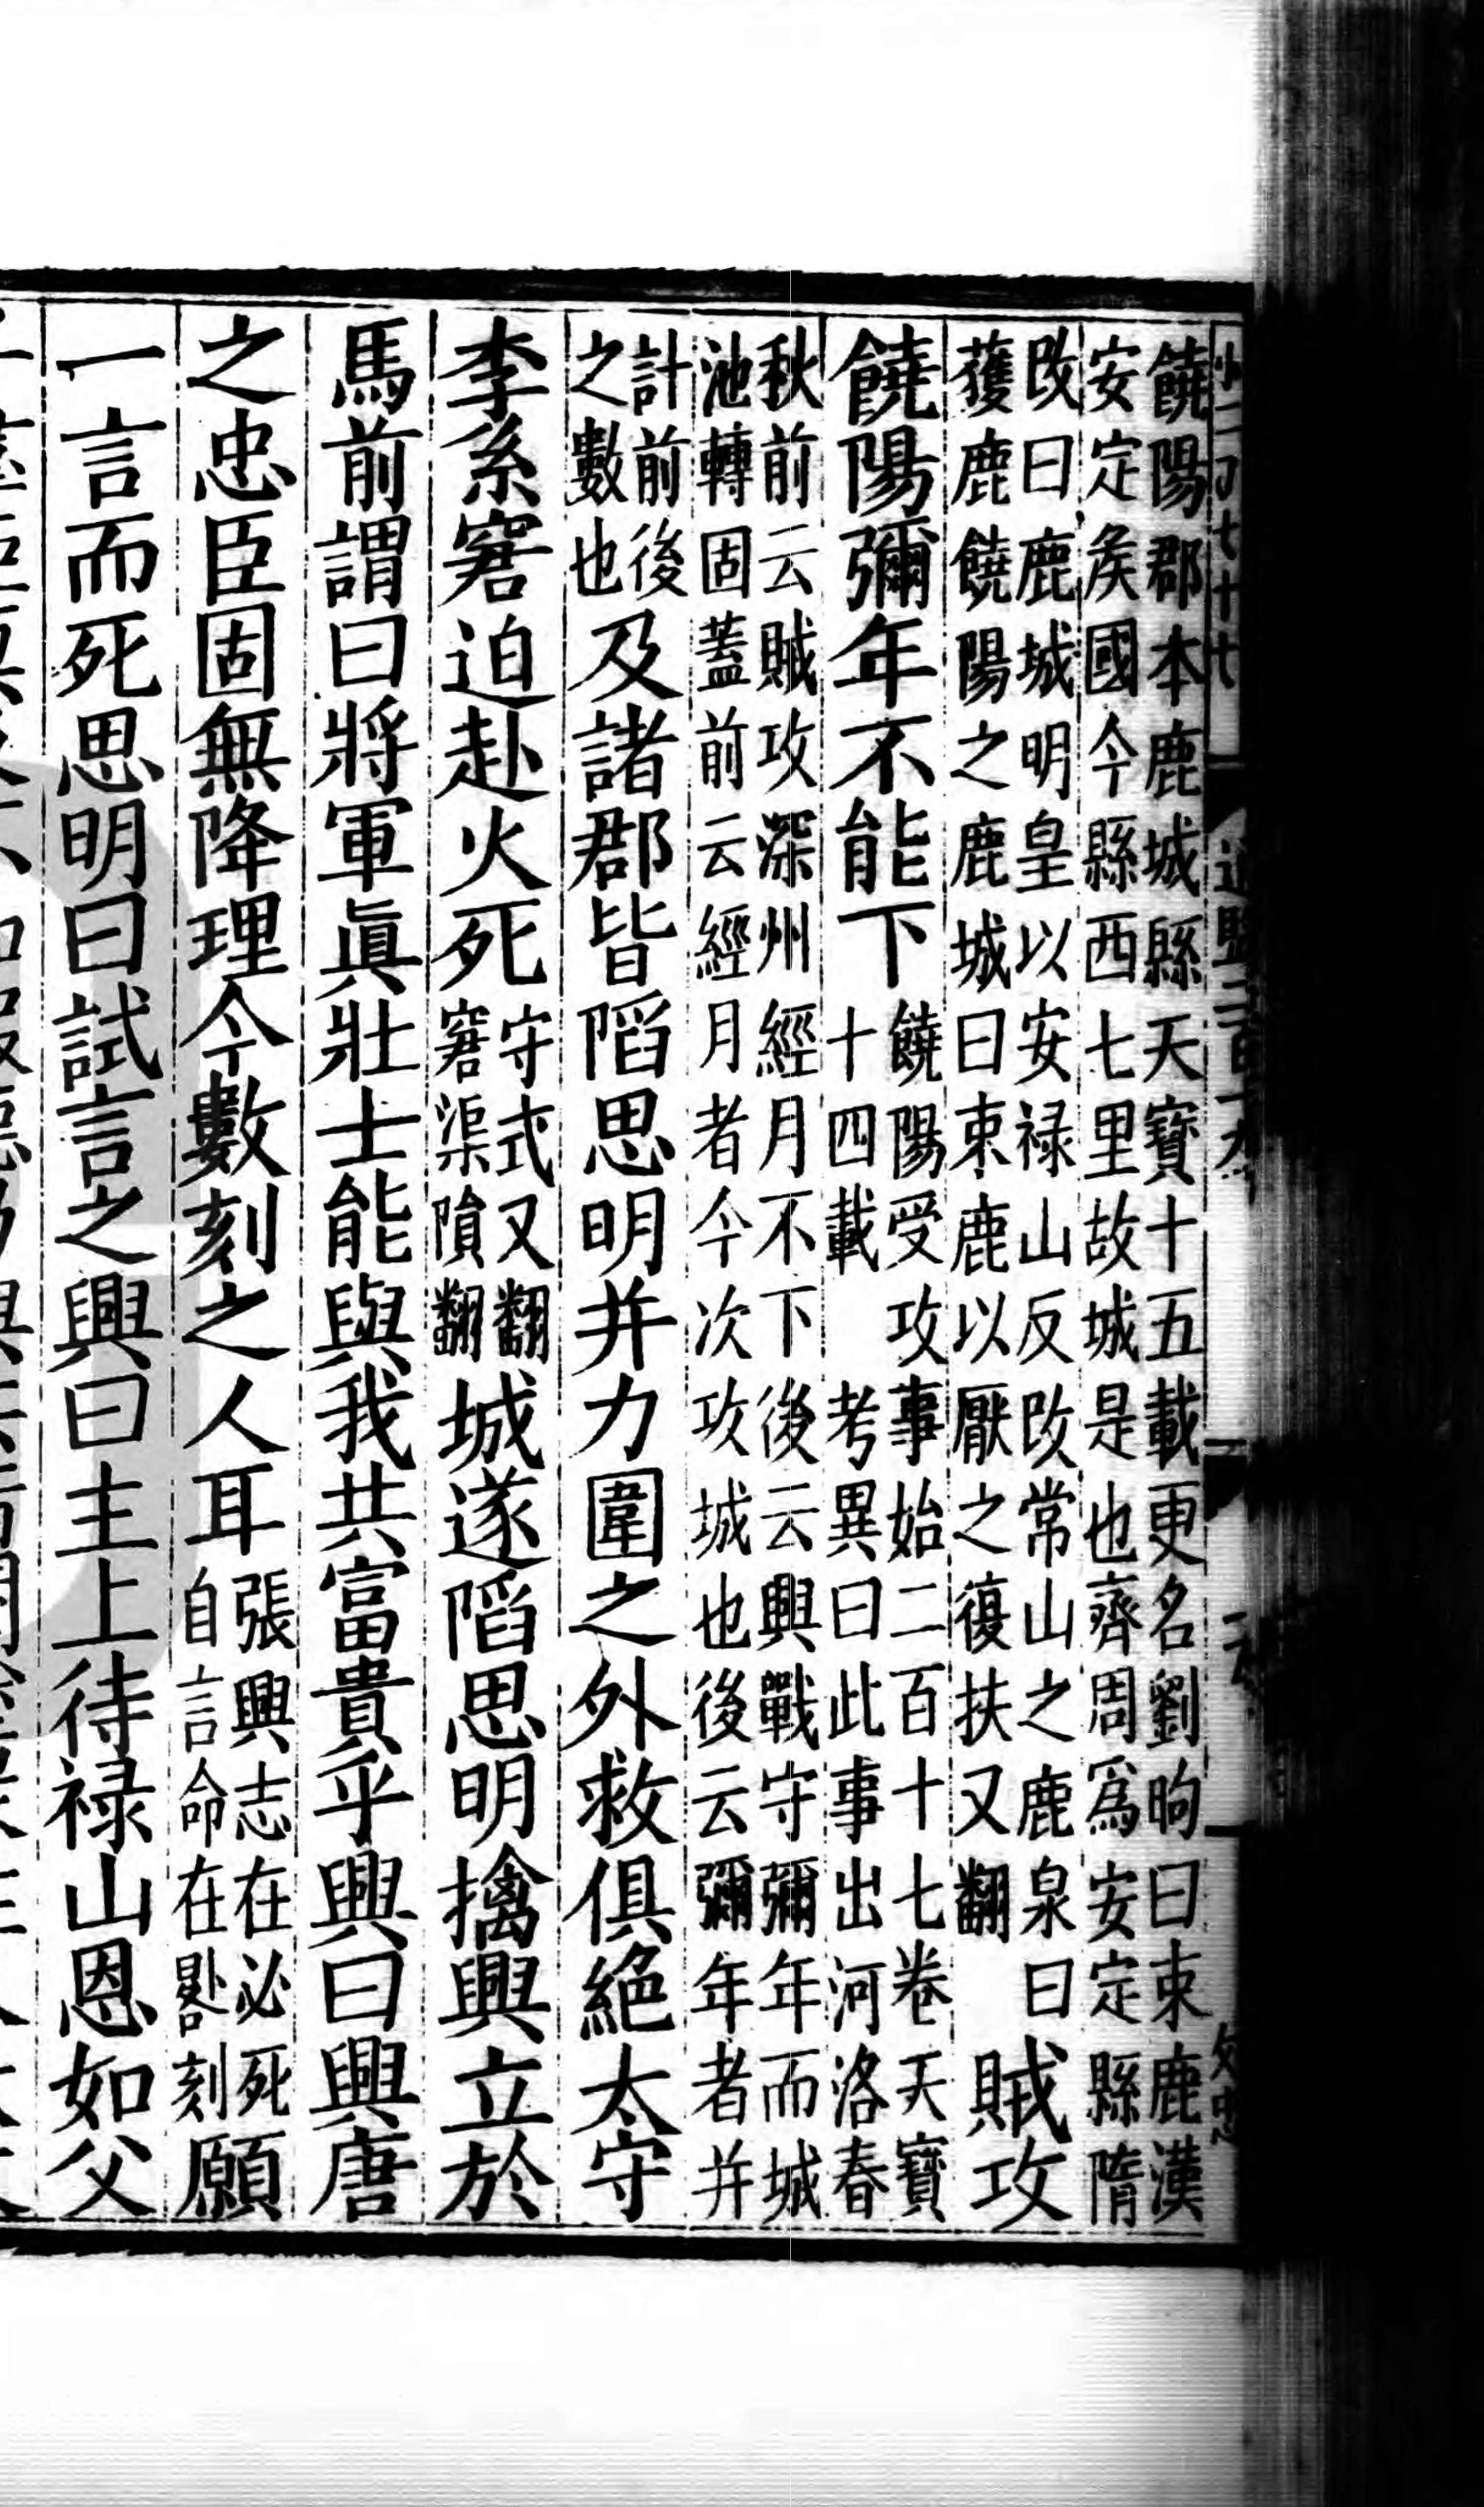 饒陽郡本鹿城縣天寶十五載更名劉昫曰束鹿漢
安定矦國今縣西七里故城是也齊周爲安定縣隋
改曰鹿城明皇以安禄山反改常山之鹿泉曰
獲鹿饒陽之鹿城曰束鹿以厭之復扶又翻
賊攻
饒陽彌年不能下
饒陽受攻事始二百十七卷天寶
十四載 考異曰此事出河洛春
秋前云賊攻深州經月不下後云興戰守彌年而城
池轉固蓋前云經月者今次攻城也後云彌年者并
計前後
之數也
及諸郡皆䧟思明并力圍之外救俱絶太守
李系窘迫赴火死
守式又翻
窘渠隕翻
城遂䧟思明擒興立於
馬前謂曰將軍眞壯士能與我共富貴乎興曰興唐
之忠臣固無降理今數刻之人耳
張興志在必死
自言命在晷刻
願
一言而死思明曰試言之興曰主上待禄山恩如父